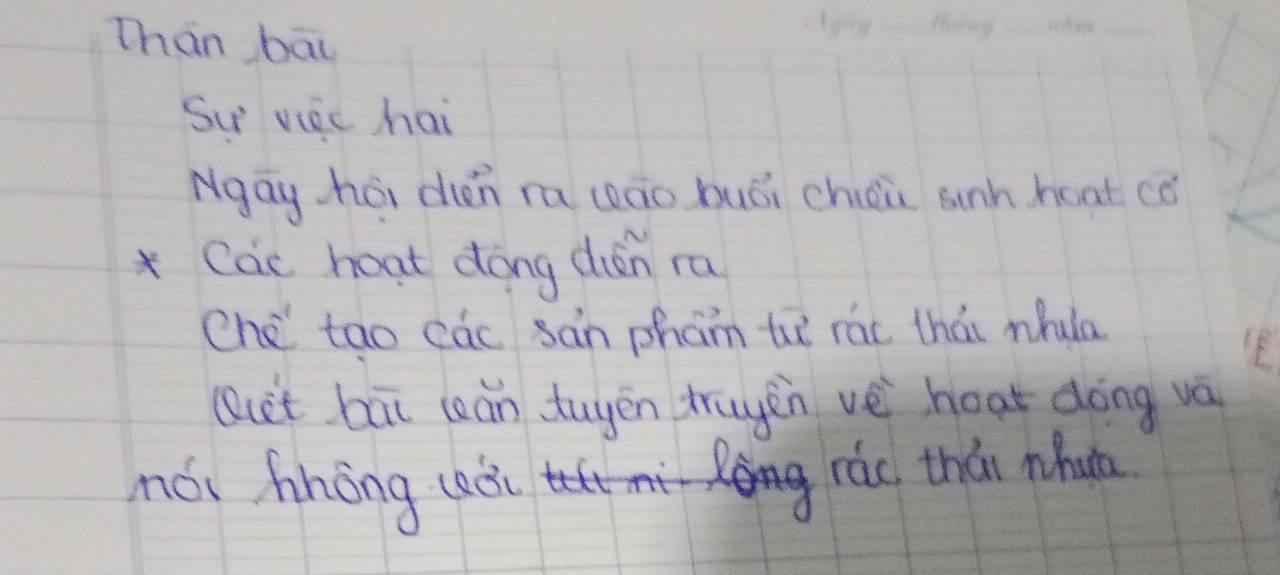 Ngày tháng năm
Thân bài
Sự việc hai
Ngày hội diễn ra vào buổi chiều sinh hoạt cờ
* Các hoạt động diễn ra
Chế tạo các sản phẩm từ rác thải nhựa
Viết bài văn tuyên truyền về hoạt động và
nói không với rác thải nhựa.